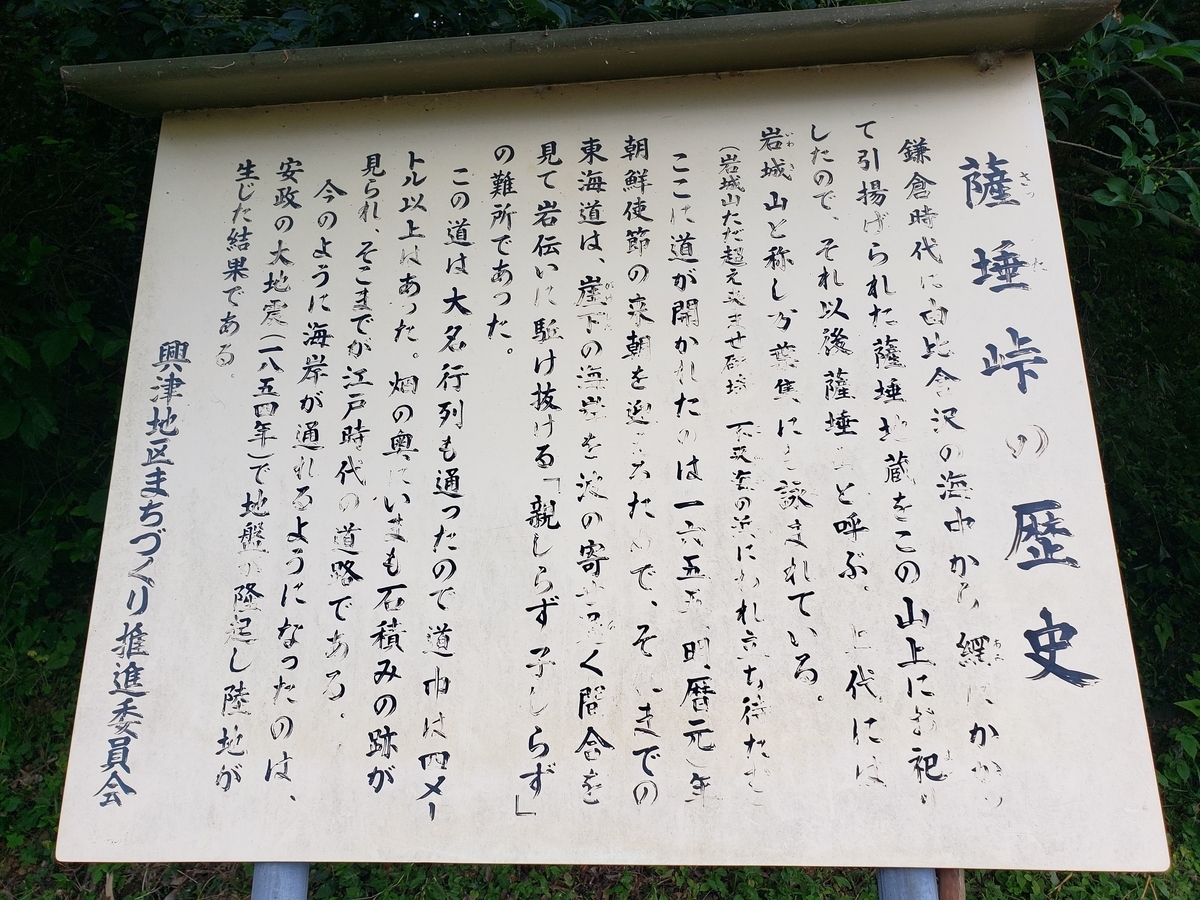 薩埵峠の歴史
鎌倉時代に由比倉沢の海中から網にかかっ
て引揚げられた薩埵地蔵をこの山上にお祀り
したので、それ以後薩埵山と呼ぶ。上代には
岩城山と称し万葉集にも詠まれている。
(岩城山ただ超え来ませ磯埼 不来海の浜にわれ立ち待たむ)
ここに道が開かれたのは一六五五(明暦元)年
朝鮮使節の来朝を迎えるためで、それまでの
東海道は、崖下の海岸を波の寄せ引く間合を
見て岩伝いに駈け抜ける「親しらず子しらず」
の難所であった。
この道は大名行列も通ったので道巾は四メー
トル以上はあった。畑の奥にいまも石積みの跡が
見られ、そこまでが江戸時代の道路である。
今のように海岸が通れるようになったのは、
安政の大地震(一八五四年)で地盤が隆起し陸地が
生じた結果である。
興津地区まちづくり推進委員会